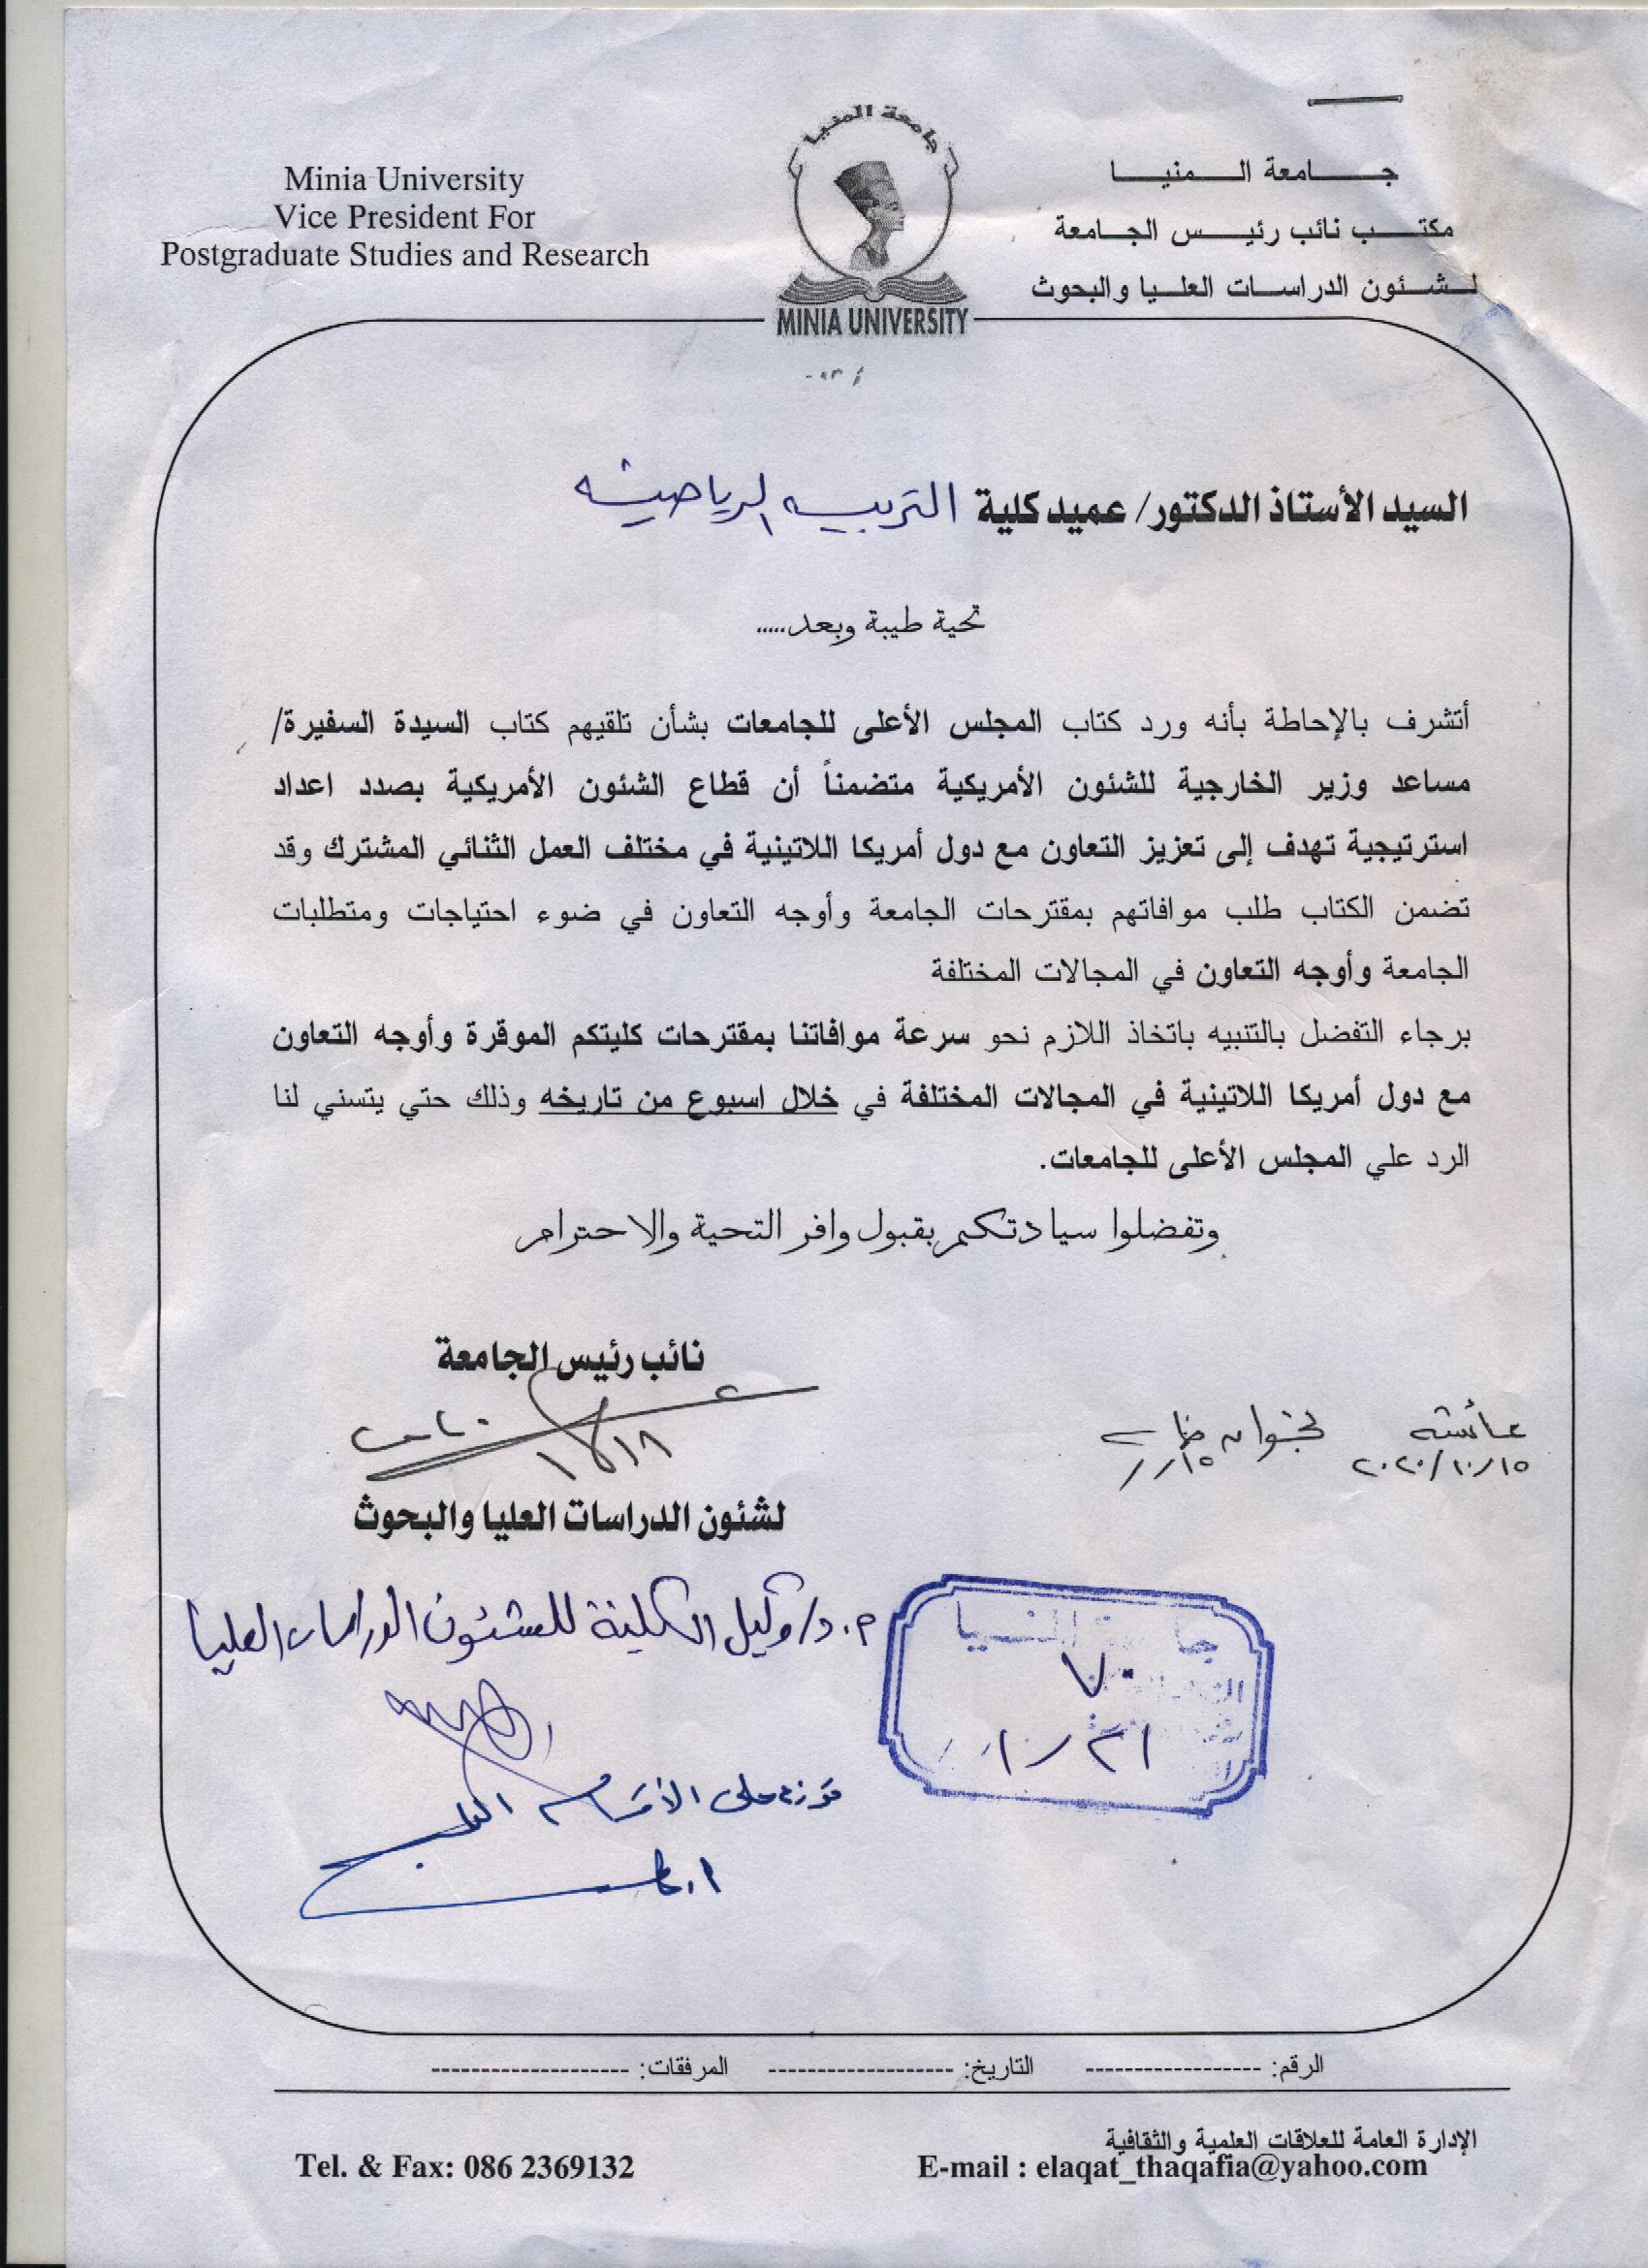 جامعة المنيا
Minia University
Vice President For
Postgraduate Studies and Research
MINIA UNIVERSITY
جـــــامعة الـــــمنيـــــا
مكتـــب نائب رئيـــس الجـــامعة
لـشـئون الدراسـات العلـيا والبحوث
السيد الأستاذ الدكتور/ عميد كلية التربيه الرياضيه
تحية طيبة وبعد.....
أتشرف بالإحاطة بأنه ورد كتاب المجلس الأعلى للجامعات بشأن تلقيهم كتاب السيدة السفيرة/
مساعد وزير الخارجية للشئون الأمريكية متضمناً أن قطاع الشئون الأمريكية بصدد اعداد
استرتيجية تهدف إلى تعزيز التعاون مع دول أمريكا اللاتينية في مختلف العمل الثنائي المشترك وقد
تضمن الكتاب طلب موافاتهم بمقترحات الجامعة وأوجه التعاون في ضوء احتياجات ومتطلبات
الجامعة وأوجه التعاون في المجالات المختلفة
برجاء التفضل بالتنبيه باتخاذ اللازم نحو سرعة موافاتنا بمقترحات كليتكم الموقرة وأوجه التعاون
مع دول أمريكا اللاتينية في المجالات المختلفة في خلال اسبوع من تاريخه وذلك حتي يتسني لنا
الرد علي المجلس الأعلى للجامعات.
وتفضلوا سيادتكم بقبول وافر التحية والاحترام
نائب رئيس الجامعة
عائشه
٢٠٢٠/١٠/١٥
لشئون الدراسات العليا والبحوث
أ.د/ وكيل الكلية للشئون الدراسات العليا
جامعة المنيا
٧٠
١٠/٢١
الرقم: ------------------ التاريخ: ------------------- المرفقات: --------------------
الإدارة العامة للعلاقات العلمية والثقافية
Tel. & Fax: 086 2369132
E-mail : elaqat_thaqafia@yahoo.com